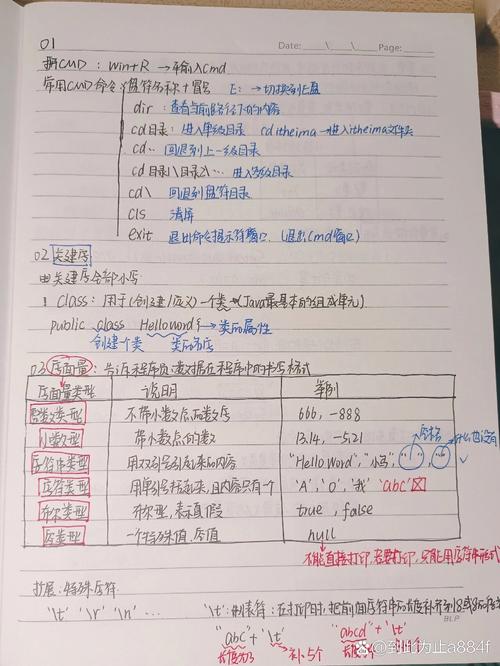 01
Date: Page:
打开CMD：Win+R → 再输入Cmd
常用CMD命令：盘符名称+冒号 E: → 切换到E盘
dir：查看当前路径下的内容
cd目录：进入单级目录 cd itheima → 进入itheima文件夹
cd.. 回退到上一级目录
cd 目录1\目录2\... 进入多级目录
cd\ 回退到盘符目录
cls 清屏
exit 退出命令提示符窗口（退出Cmd窗口）
02 关键字
关键字全部小写
class：用于(创建/定义)一个类(Java最基本的组成单元)
public class HelloWord { → 类的属性
创建一个类 类的名字
03 字面量：告诉程序员数据在程序中的书写格式
字面量类型 说明 举例
整数类型 不带小数点的数字 666, -888
小数类型 带小数点的数 13.14, -5.21
空格 什么也没有
字符串类型 用双引号引起来的内容 "Hello Word", "小马", " ", ""
字符类型 用单引号括起来,且内容只有一个 'A', '0', '我' 'abc'
布尔类型 布尔型,表示真假 true, false
空类型 一个特殊值,空值 null
不能直接打印,若要打印,只能用字符串形式
扩展：特殊字符
'\t' '\r' '\n' ... '\t'：制表符：在打印时,把前面字符串的长度补齐到8或8的
BLP
"abc"+'\t' "abcd"+'\t'
长度为3 补5个
@到此为止a884f